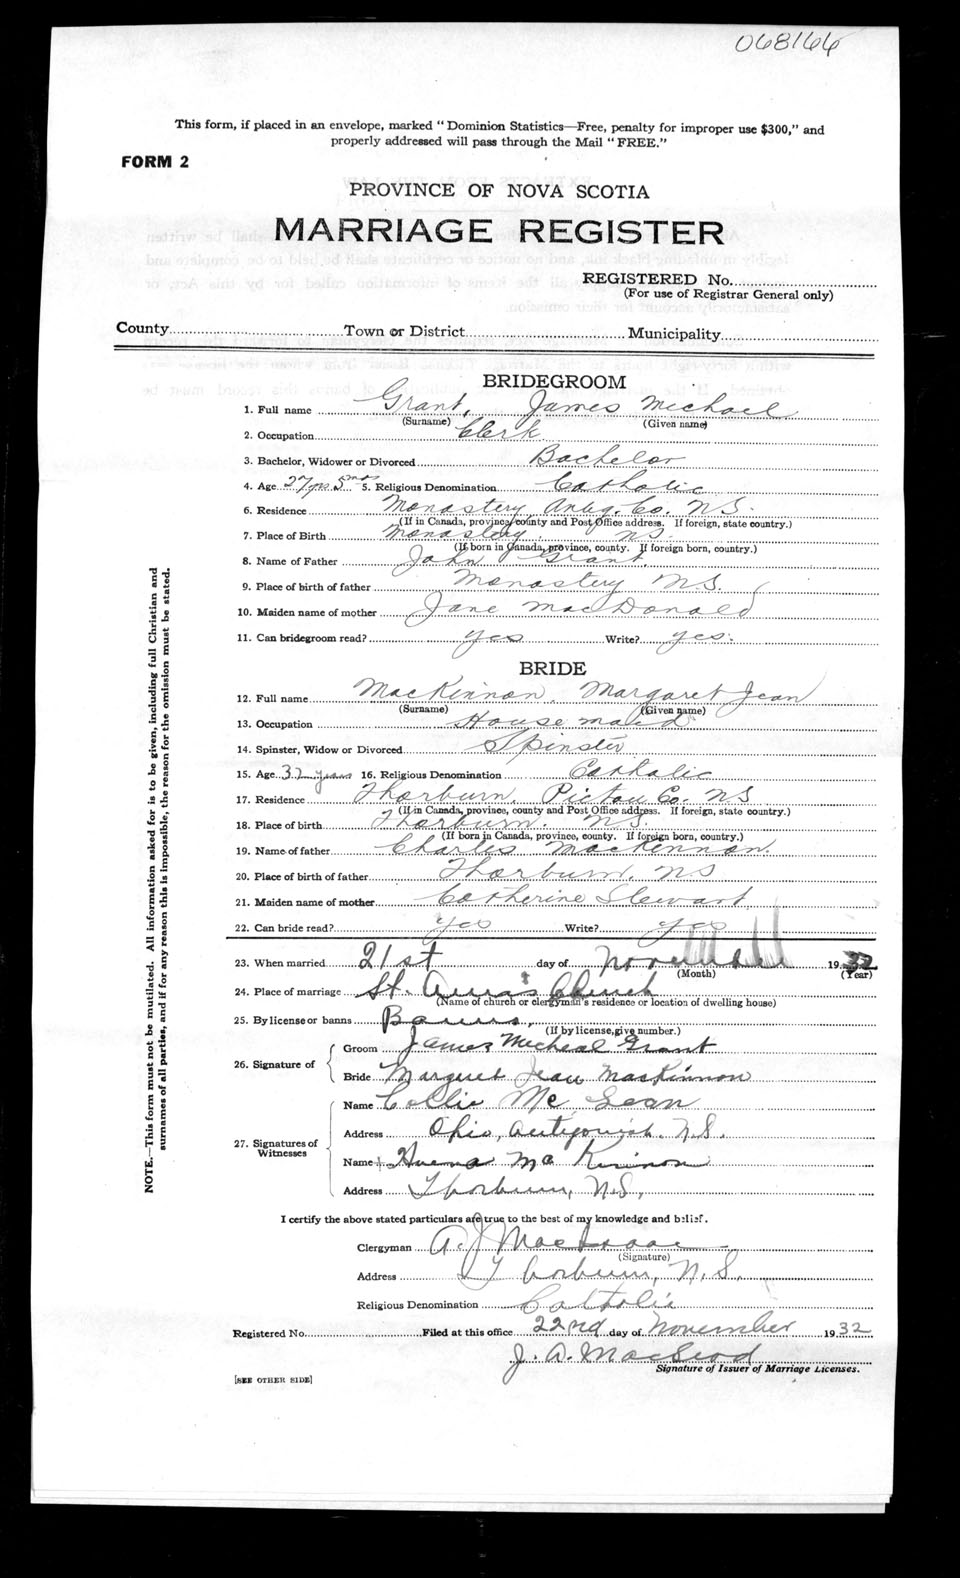 068166
This form, if placed in an envelope, marked "Dominion Statistics—Free, penalty for improper use $300," and
properly addressed will pass through the Mail "FREE."
FORM 2
PROVINCE OF NOVA SCOTIA
MARRIAGE REGISTER
REGISTERED No.
(For use of Registrar General only)
County Town or District Municipality
BRIDEGROOM
1. Full name Grant, James Michael
(Surname) (Given name)
2. Occupation Clerk
3. Bachelor, Widower or Divorced Bachelor
4. Age 27 yrs 5 mos 5. Religious Denomination Catholic
6. Residence Monastery, Antig. Co. N.S.
(If in Canada, province, county and Post Office address. If foreign, state country.)
7. Place of Birth Monastery, N.S.
(If born in Canada, province, county. If foreign born, country.)
8. Name of Father John Grant
9. Place of birth of father Monastery N.S.
10. Maiden name of mother Jane MacDonald
11. Can bridegroom read? yes Write? yes.
BRIDE
12. Full name MacKinnon, Margaret Jean
(Surname) (Given name)
13. Occupation House maid
14. Spinster, Widow or Divorced Spinster
15. Age 32 years 16. Religious Denomination Catholic
17. Residence Thorburn, Pictou Co. NS
(If in Canada, province, county and Post Office address. If foreign, state country.)
18. Place of birth Thorburn. N.S.
(If born in Canada, province, county. If foreign born, country.)
19. Name of father Charles MacKinnon.
20. Place of birth of father Thorburn, NS
21. Maiden name of mother Catherine Stewart
22. Can bride read? yes Write? yes
23. When married 21st day of November 1932
(Month) (Year)
24. Place of marriage St. Anna's Church
(Name of church or clergyman's residence or location of dwelling house)
25. By license or banns Banns,
(If by license, give number.)
26. Signature of
Groom James Micheal Grant
Bride Margaret Jean MacKinnon
27. Signatures of
Witnesses
Name Collie Mc Lean
Address Ohio, Antigonish. N.S.
Name Mc Kinnon
Address Thorburn, N.S,
I certify the above stated particulars are true to the best of my knowledge and belief.
Clergyman A. J MacIsaac
(Signature)
Address Thorburn, N.S.
Religious Denomination Catholic
Registered No. Filed at this office 22nd day of November 1932
J. A. MacLeod
Signature of Issuer of Marriage Licenses.
[SEE OTHER SIDE]
NOTE.—This form must not be mutilated. All information asked for is to be given, including full Christian and
surnames of all parties, and if for any reason this is impossible, the reason for the omission must be stated.